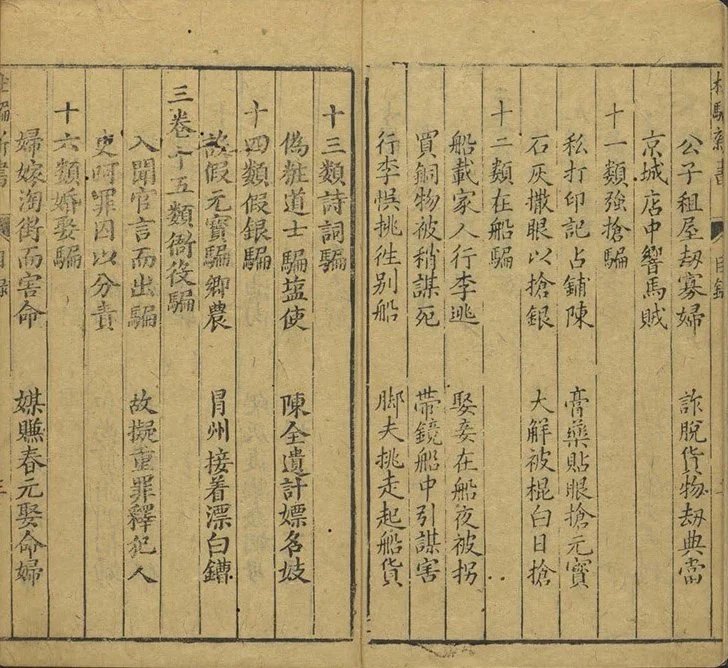 公子租屋刼寡婦 詐脫貨物刼典當
京城店中響馬賊
十一類強搶騙
私打印記占鋪陳 膏藥貼眼搶元寶
石灰撒眼以搶銀 大解被棍白日搶
十二類在船騙
船載家人行李逃 娶妾在船夜被拐
買銅物被稍謀死 帶鏡船中引謀害
行李悞挑徃別船 脚夫挑走起船貨
十三類詩詞騙
偽粧道士騙塩使 陳全遺計嫖名妓
十四類假銀騙
設假元寶騙鄉農 冐州接着漂白鏪
三卷十五類衙役騙
入聞官言而出騙 故擬重罪釋犯人
吏呵罪囚以分責
十六類婚娶騙
婦嫁淘街而害命 媒賺春元娶命婦